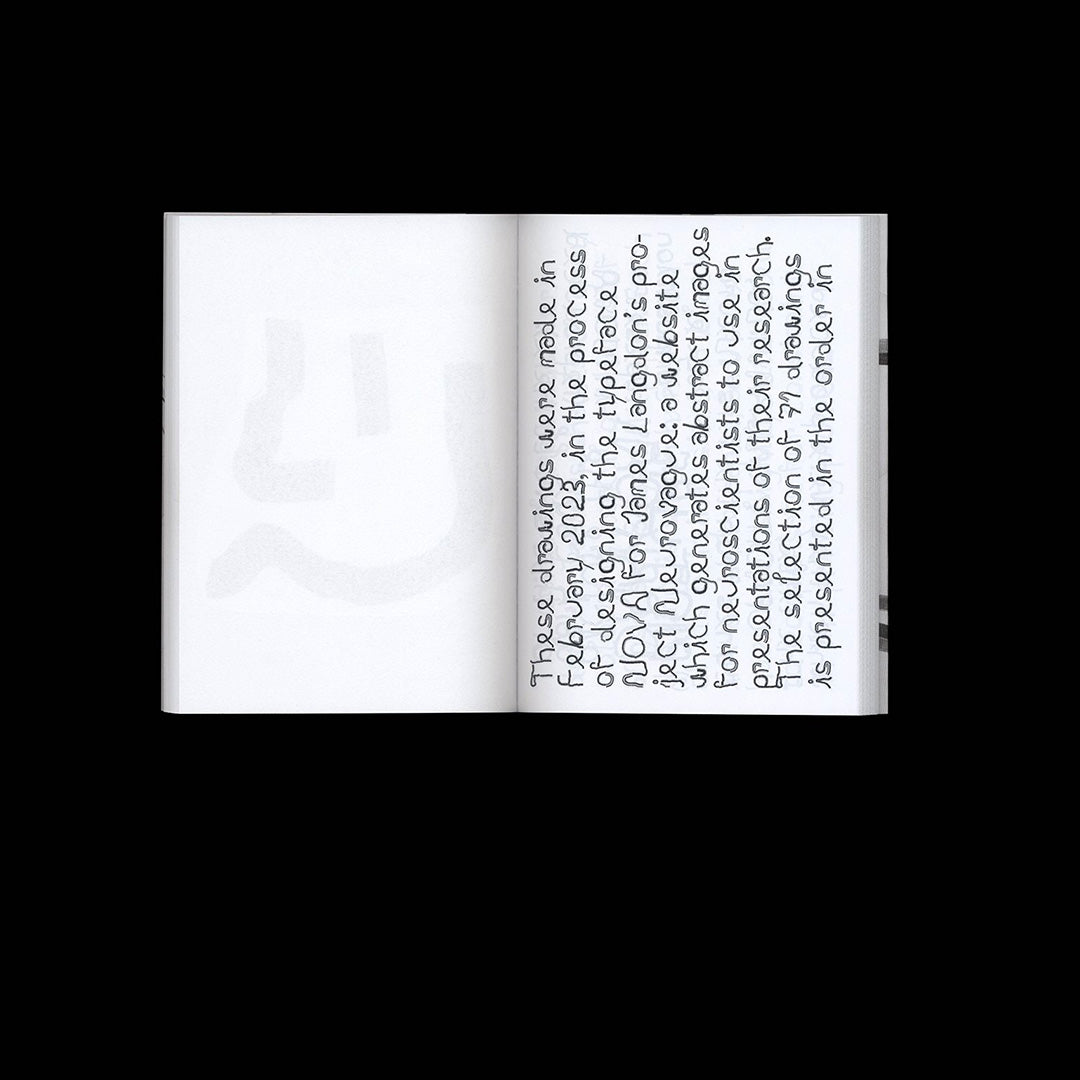 These drawings were made in
February 2023, in the process
of designing the typeface
NOVA for James Langdon's pro-
ject Neurovague: a website
which generates abstract images
for neuroscientists to use in
presentations of their research.
The selection of 71 drawings
is presented in the order in